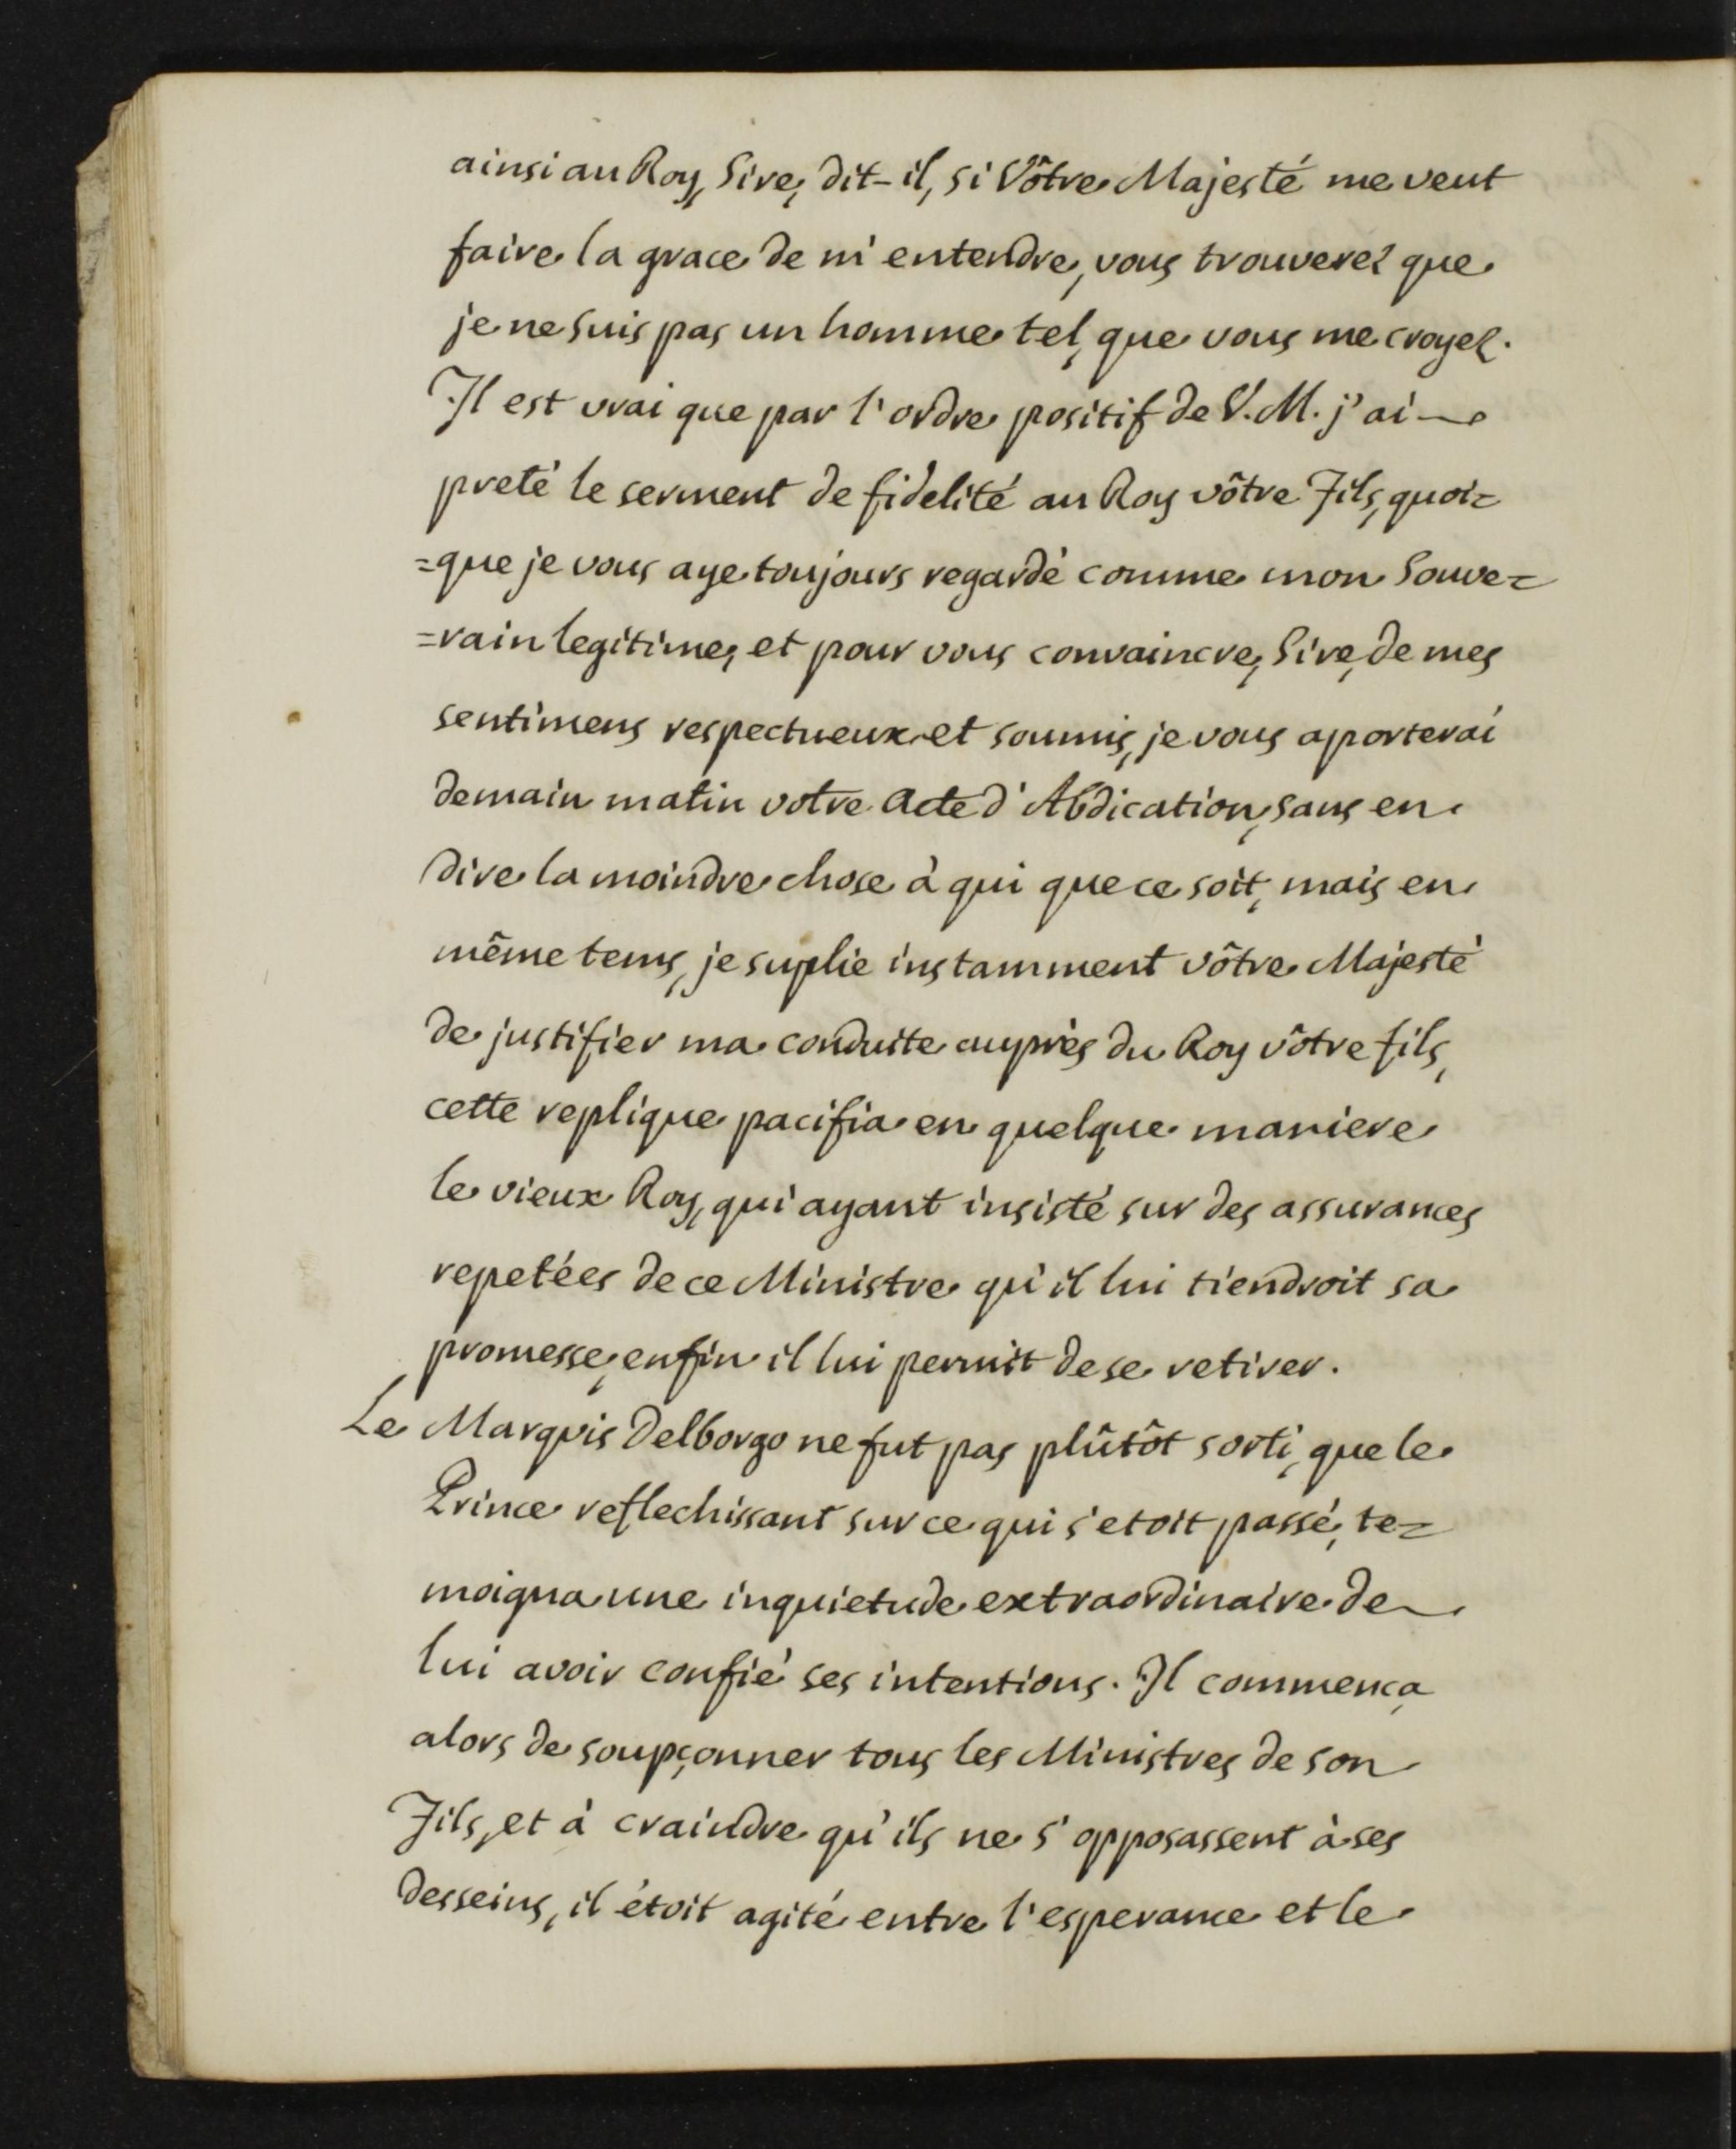 ainsi au Roy, Sire, dit-il, si Vôtre Majesté me veut
faire la grace de m'entendre, vous trouverez que
je ne suis pas un homme tel, que vous me croyez.
Il est vrai que par l'ordre positif de V. M. j'ai
preté le serment de fidelité au Roy vôtre Fils, quoi=
=que je vous aye toujours regardé comme mon Souve=
=rain legitime, et pour vous convaincre, Sire, de mes
sentimens respectueux et soumis, je vous aporterai
demain matin votre Acte d'Abdication, sans en
dire la moindre chose à qui que ce soit, mais en
même tems, je suplie instamment vôtre Majesté
de justifier ma conduite auprès du Roy vôtre fils,
cette replique pacifia en quelque maniere
le vieux Roy, qui ayant insisté sur des assurances
repetées de ce Ministre qu'il lui tiendroit sa
promesse, enfin il lui permit de se retirer.
Le Marquis Delborgo ne fut pas plûtôt sorti, que le
Prince reflechissant sur ce qui s'etoit passé, te=
moigna une inquietude extraordinaire de
lui avoir confié ses intentions. Il commença
alors de soupçonner tous les Ministres de son
Fils, et à craindre qu'ils ne s'opposassent à ses
desseins, il étoit agité entre l'esperance et le